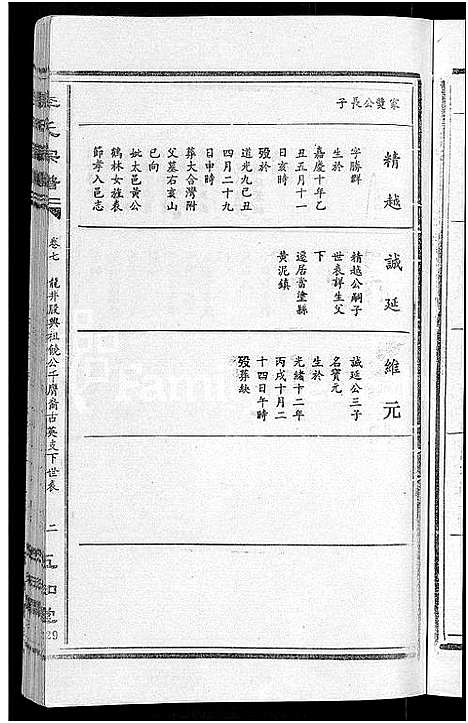 家龑公長子
精越
字勝群
生於
嘉慶十年乙
丑五月十一
日亥時
歿於
道光九己丑
四月二十九
日申時
葬大合灣附
父墓右亥山
巳向
妣太邑黃公
鶴林女旌表
節孝入邑志
誠延
精越公嗣子
世表詳生父
下
遷居當塗縣
黃泥鎮
維元
誠延公三子
名寶元
生於
光緒十二年
丙戌十月二
十四日午時
歿葬缺
氏宗譜
卷七
龍井股興祖饒公千膺裔古英支下世表
二
五知堂
29